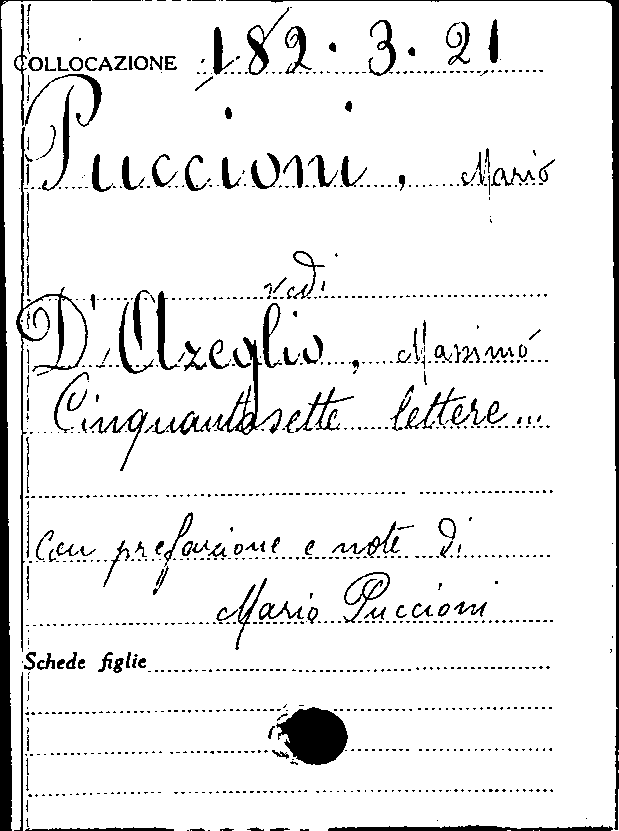 COLLOCAZIONE 182.3.21
Puccioni, Mario
vedi
D'Azeglio, Massimo
Cinquantasette lettere...
Con prefazione e note di
Mario Puccioni
Schede figlie